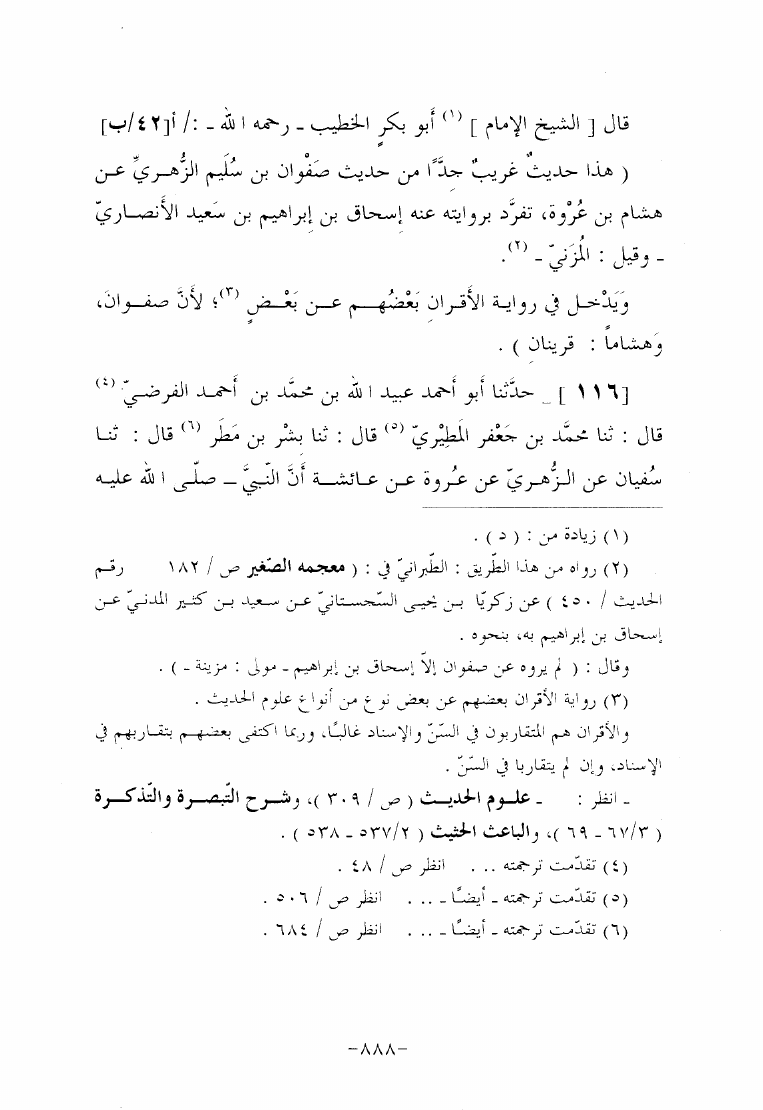 قال [ الشيخ الإمام ] (١) أبو بكرٍ الخطيب ـ رحمه الله ـ :/ أ[٤٢/ب]
( هذا حديثٌ غريبٌ جدًّا من حديث صَفْوان بن سُلَيم الزُّهـريِّ عـن
هشام بن عُرْوة، تفرَّد بروايته عنه إسحاق بن إبراهيم بن سَعيد الأنصـاريّ
ـ وقيل : المُزَنيّ ـ (٢).
وَيَدْخـل في روايـة الأقـران بَعْضُهـم عـن بَعْـضٍ (٣)؛ لأنَّ صفـوان،
وَهشاماً : قرينان ) .
[١١٦] _ حدَّثنا أبو أحمد عبيد الله بن محمَّد بن أحمـد الفرضيّ (٤)
قال : ثنا محمَّد بن جَعْفر المَطِيْريّ (٥) قال : ثنا بشْر بن مَطَر (٦) قال : ثنـا
سُفيان عن الـزُّهـريّ عن عُـروة عـن عـائشـة أنَّ النَّبيَّ ـ صلَّـى الله عليـه
(١) زيادة من : ( د ) .
(٢) رواه من هذا الطّريق : الطّبرانيّ في : ( معجمه الصّغير ص / ١٨٢ رقـم
الحديث / ٤٥٠ ) عن زكريّا بـن يحيـى السّجسـتانيّ عـن سـعيد بـن كثـير المدنـيّ عـن
إسحاق بن إبراهيم به، بنحوه .
وقال : ( لم يروه عن صفوان إلاّ إسحاق بن إبراهيم ـ مولى : مزينة ـ ) .
(٣) رواية الأقران بعضهم عن بعض نوع من أنواع علوم الحديث .
والأقران هم المتقاربون في السّنّ والإسناد غالبًـا، وربمـا اكتفـى بعضهـم بتقـاربهم في
الإسناد، وإن لم يتقاربا في السّنّ .
ـ انظر : ـ علـوم الحديـث ( ص / ٣٠٩ )، وشـرح التّبصـرة والتّذكـرة
( ٣/ ٦٧ ـ ٦٩ )، والباعث الحثيث ( ٢/ ٥٣٧ ـ ٥٣٨ ) .
(٤) تقدّمت ترجمته ... . انظر ص / ٤٨ .
(٥) تقدّمت ترجمته ـ أيضًـا ـ ... . انظر ص / ٥٠٦ .
(٦) تقدّمت ترجمته ـ أيضًـا ـ ... . انظر ص / ٦٨٤ .
-٨٨٨-